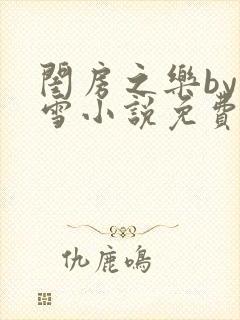 閨房之樂by
雪小說免費
仇鹿鳴